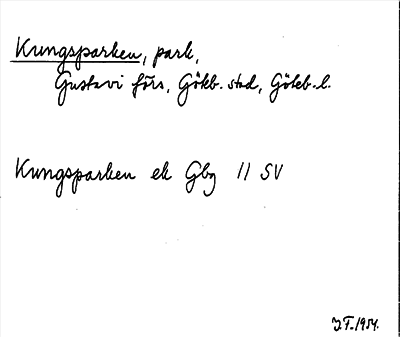 Kungsparken, park,
Gustavi förs, Göteb. stad, Göteb. l.
Kungsparken ek Gbg 11 SV
J.F. 1954.